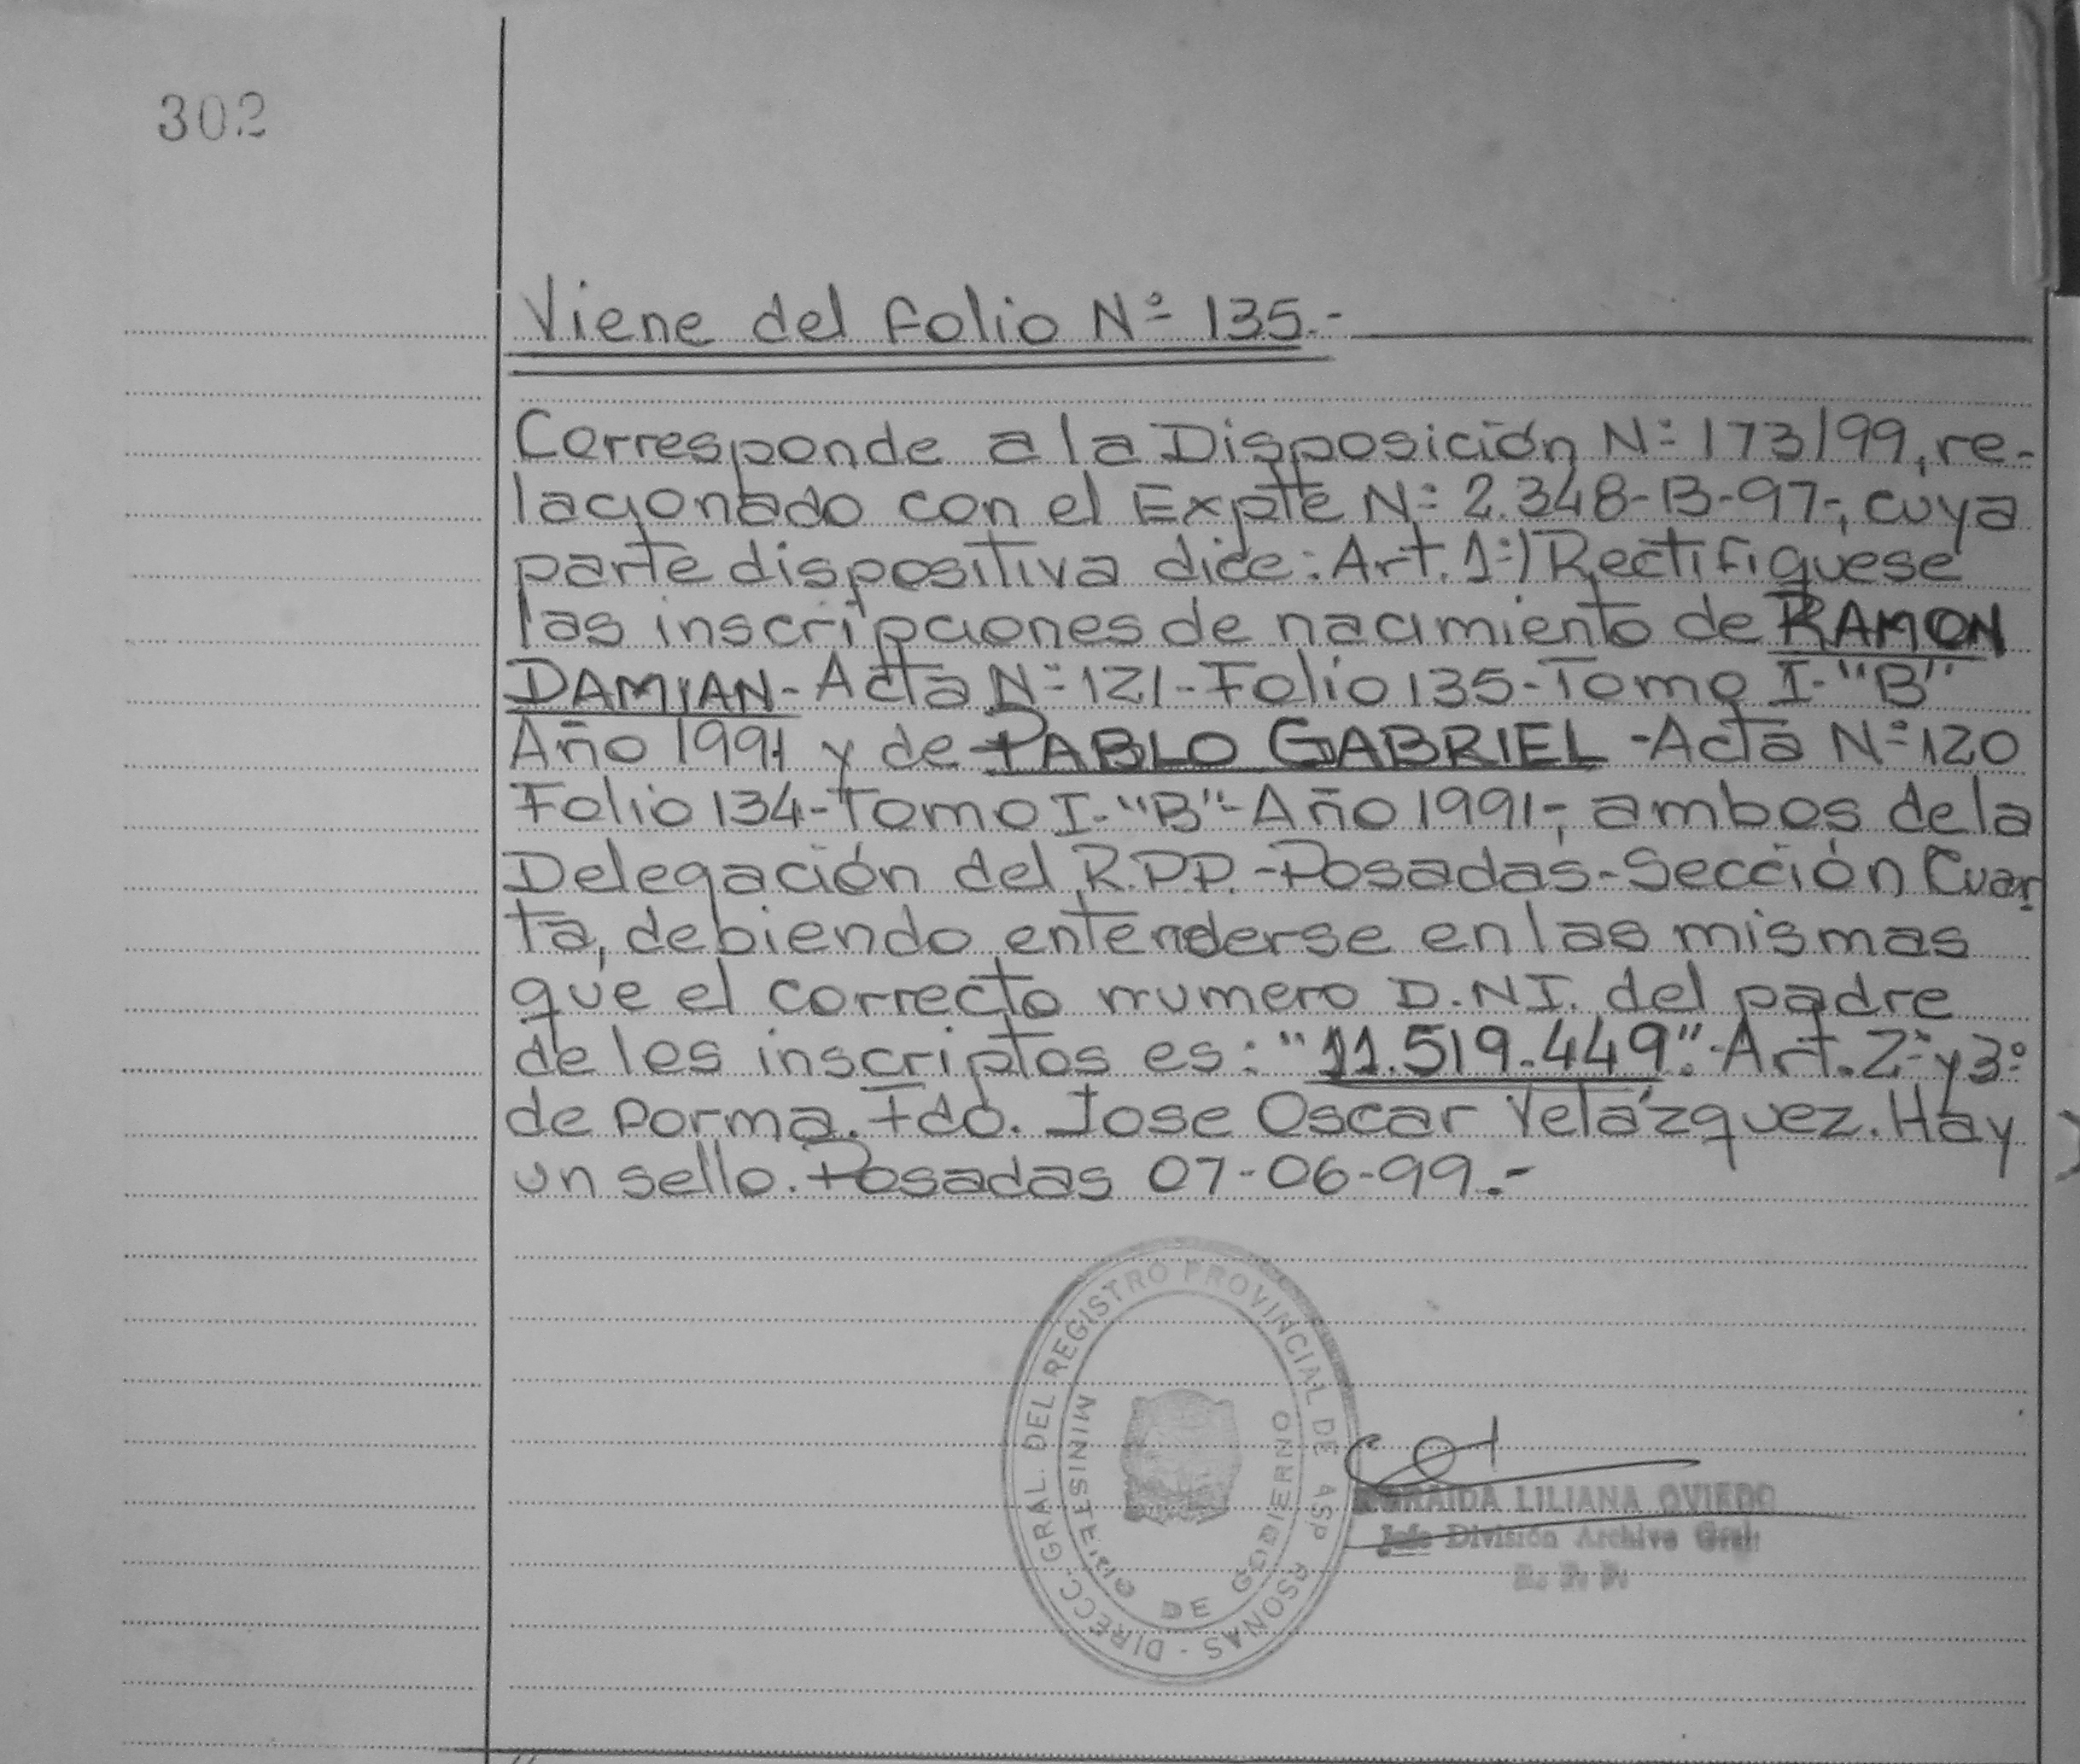 302
Viene del folio Nº 135.-
Corresponde a la Disposición Nº 173/99, re-
lacionado con el Expte Nº 2.348-B-97-, cuya
parte dispositiva dice: Art. 1º) Rectifiquese
las inscripciones de nacimiento de RAMON
DAMIAN- Acta Nº 121- Folio 135- Tomo I- "B"
Año 1991 y de PABLO GABRIEL - Acta Nº 120
Folio 134- Tomo I- "B"- Año 1991-, ambos de la
Delegación del R.P.P. - Posadas- Sección Cuar
ta, debiendo entenderse en las mismas
que el correcto numero D.NI. del padre
de los inscriptos es: "11.519.449". Art. 2º y 3º
de forma. Fdo. Jose Oscar Velázquez. Hay
un sello. Posadas 07-06-99.-
DIRECC. GRAL. DEL REGISTRO PROVINCIAL DE
MINISTERIO DE GOBIERNO
LILIANA OVIEDO
Jefe División Archivo Gral.